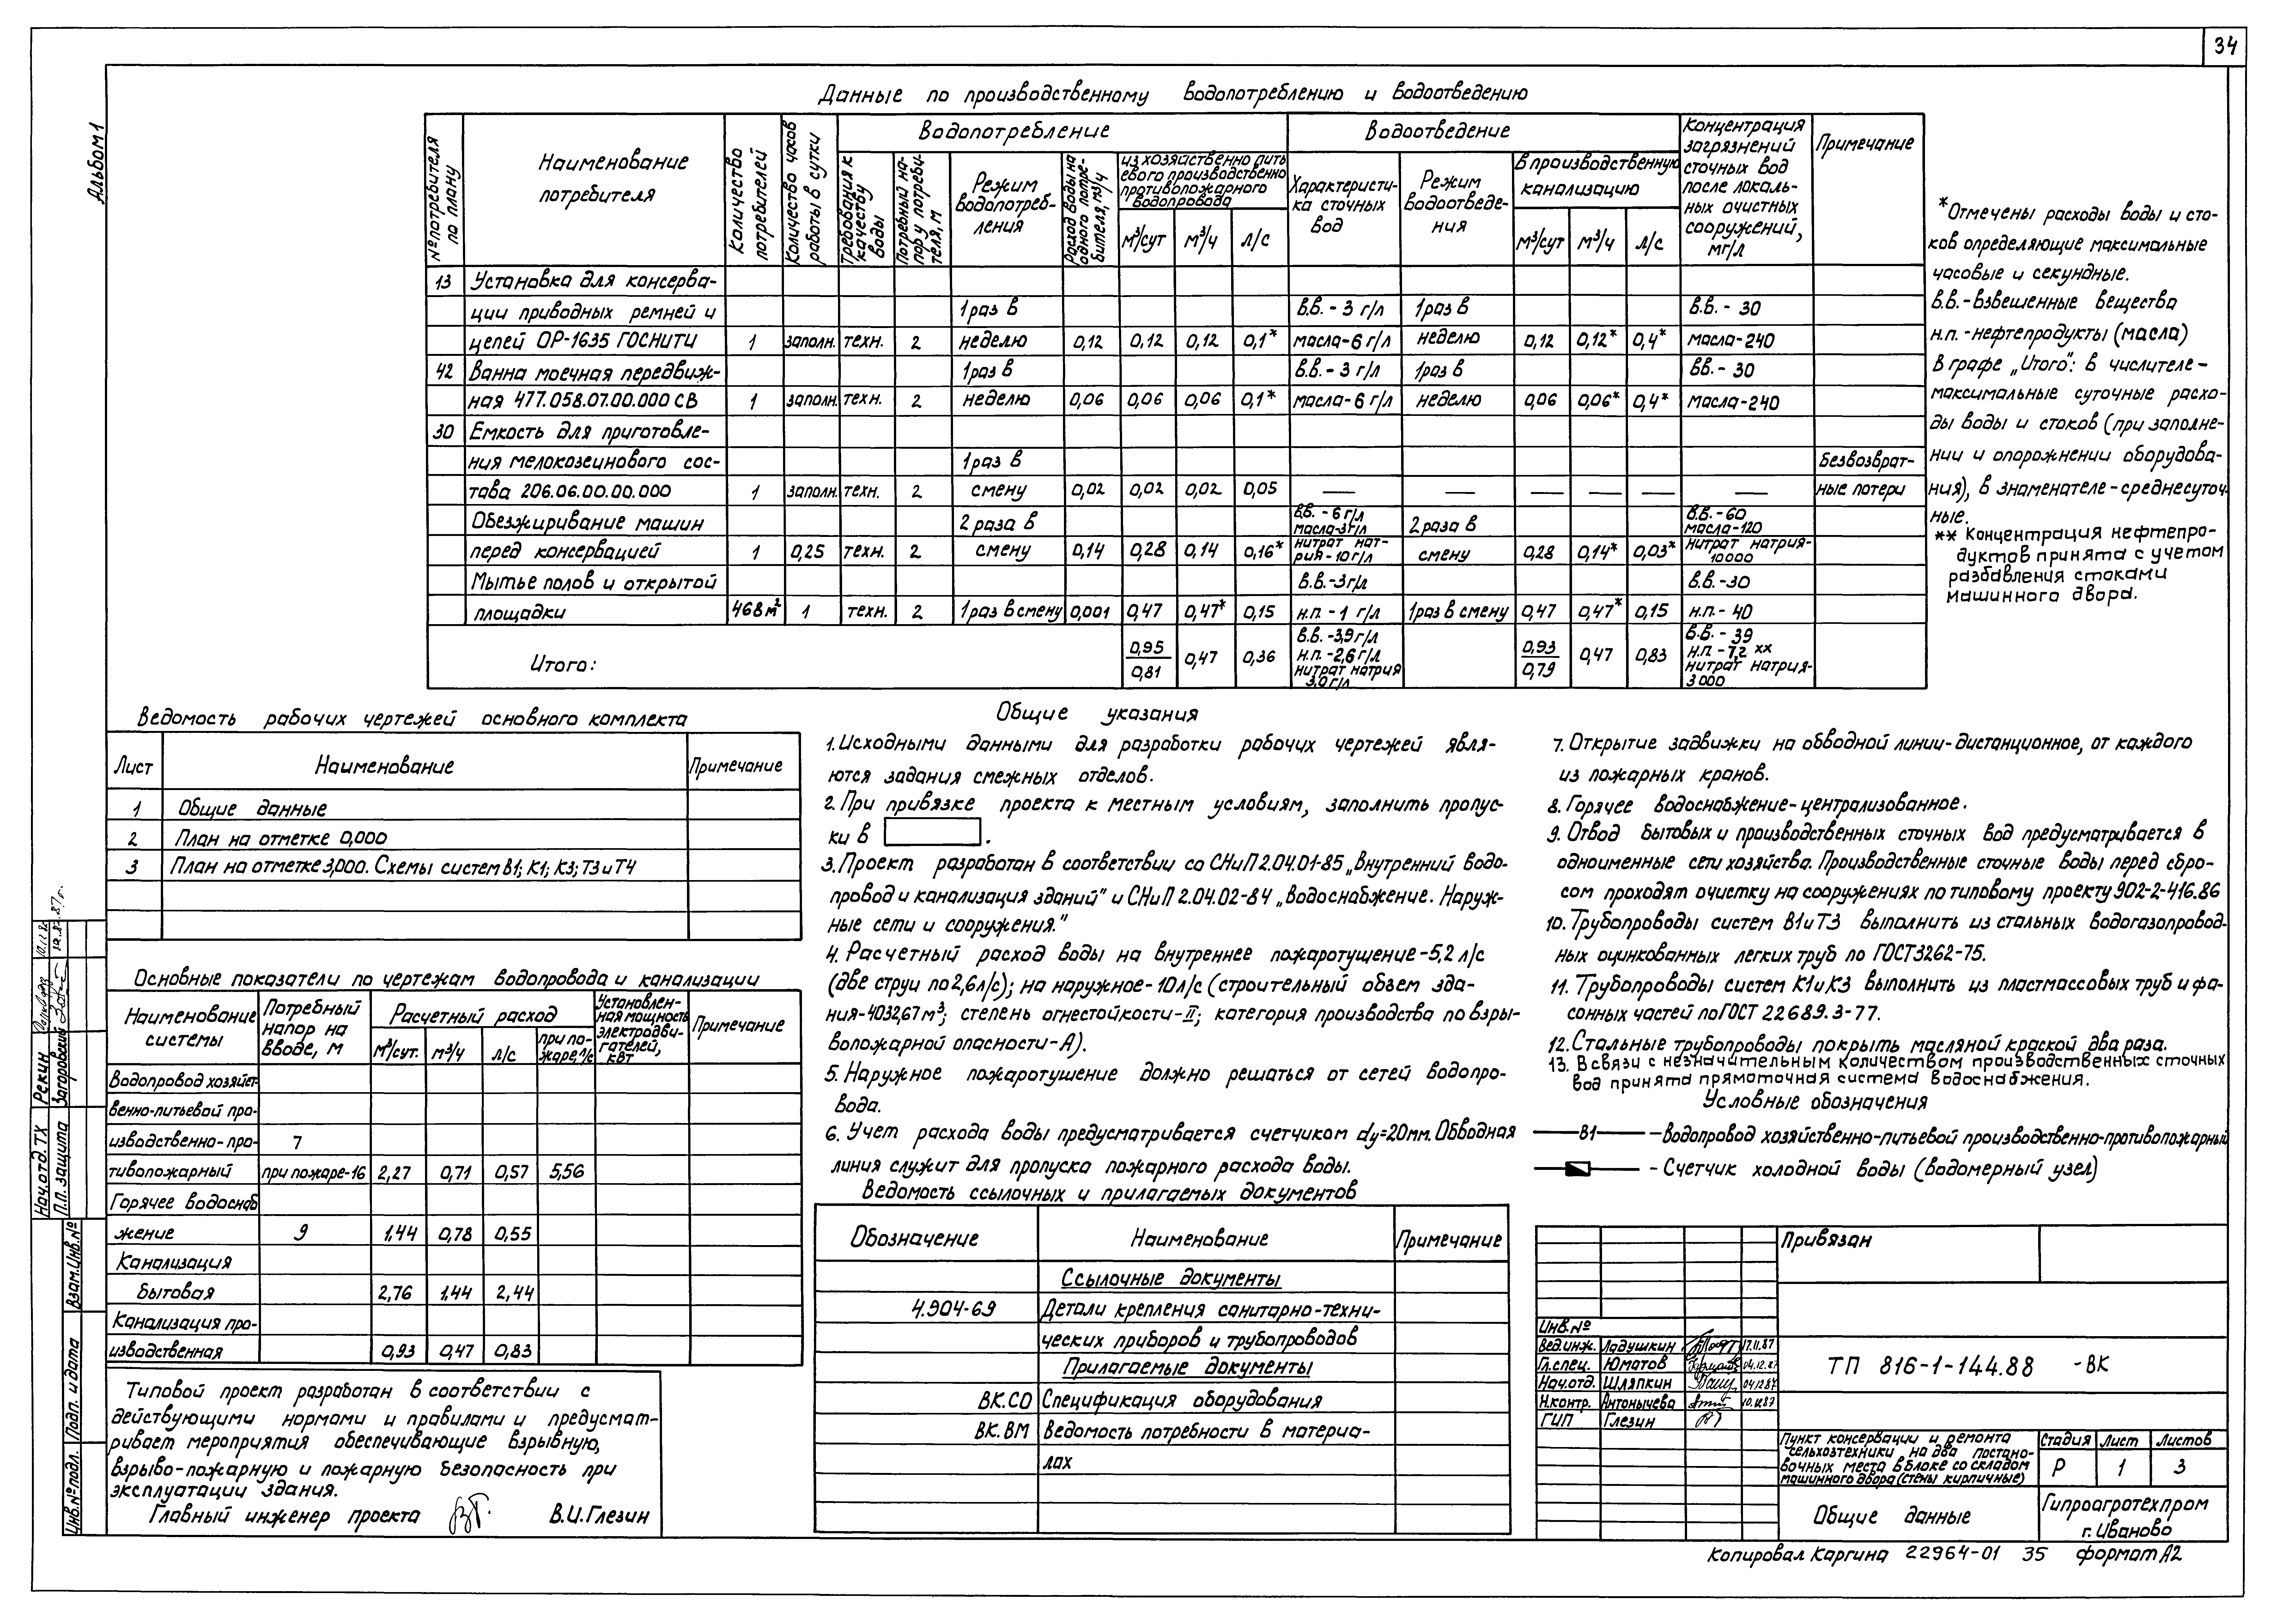 34
Альбом 1
Данные по производственному водопотреблению и водоотведению
№ потребителя по плану
Наименование потребителя
Количество потребителей
Количество часов работы в сутки
Водопотребление
Требования к качеству воды
Потребный напор у потребителя, м
Режим водопотребления
Расход воды на одного потребителя, м³/ч
из хозяйственно питьевого производственно противопожарного водопровода
м³/сут м³/ч л/с
Водоотведение
Характеристика сточных вод
Режим водоотведения
В производственную канализацию
м³/сут м³/ч л/с
Концентрация загрязнений сточных вод после локальных очистных сооружений, мг/л
Примечание
13 Установка для консерва-
ции приводных ремней и 1 раз в в.в. - 3 г/л 1 раз в в.в. - 30
цепей ОР-1635 ГОСНИТИ 1 заполн. техн. 2 неделю 0,12 0,12 0,12 0,1* масла-6 г/л неделю 0,12 0,12* 0,4* масла-240
42 Ванна моечная передвиж- 1 раз в в.в. - 3 г/л 1 раз в вв. - 30
ная 477.058.07.00.000 СВ 1 заполн. техн. 2 неделю 0,06 0,06 0,06 0,1* масла-6 г/л неделю 0,06 0,06* 0,4* масла-240
30 Емкость для приготовле-
ния мелокозеинового сос- 1 раз в безвозврат-
тава 206.06.00.00.000 1 заполн. техн. 2 смену 0,02 0,02 0,02 0,05 — — — — — — ные потери
Обезжиривание машин 2 раза в в.в. - 6 г/л масла-3 г/л 2 раза в в.в. - 60 масла-120
перед консервацией 1 0,25 техн. 2 смену 0,14 0,28 0,14 0,16* нитрат натрия-10 г/л смену 0,28 0,14* 0,03* нитрат натрия-10000
Мытье полов и открытой в.в.-3г/л в.в.-30
площадки 468м² 1 техн. 2 1 раз в смену 0,001 0,47 0,47* 0,15 н.п. - 1 г/л 1 раз в смену 0,47 0,47* 0,15 н.п. - 40
Итого: 0,95/0,81 0,47 0,36 в.в. -3,9 г/л н.п. -2,6 г/л нитрат натрия 3,0 г/л 0,93/0,79 0,47 0,83 в.в. - 39 н.п - 7,2 ** нитрат натрия-3000
*Отмечены расходы воды и сто-
ков определяющие максимальные
часовые и секундные.
в.в.-взвешенные вещества
н.п.-нефтепродукты (масла)
В графе „Итого": в числителе-
максимальные суточные расхо-
ды воды и стоков (при заполне-
нии и опорожнении оборудова-
ния), в знаменателе-среднесуточ-
ные.
** Концентрация нефтепро-
дуктов принята с учетом
разбавления стоками
машинного двора.
Ведомость рабочих чертежей основного комплекта
Лист Наименование Примечание
1 Общие данные
2 План на отметке 0,000
3 План на отметке 3,000. Схемы систем В1; К1; К3; Т3 и Т4
Основные показатели по чертежам водопровода и канализации
Наименование системы
Потребный напор на вводе, м
Расчетный расход
м³/сут. м³/ч л/с при пожаре, л/с
Установленная мощность электродвигателей, кВт
Примечание
Водопровод хозяйст-
венно-питьевой про-
изводственно-про- 7
тивопожарный при пожаре-16 2,27 0,71 0,57 5,56
Горячее водоснаб
жение 9 1,44 0,78 0,55
Канализация
бытовая 2,76 1,44 2,44
Канализация про-
изводственная 0,93 0,47 0,83
Типовой проект разработан в соответствии с
действующими нормами и правилами и предусмат-
ривает мероприятия обеспечивающие взрывную,
взрыво-пожарную и пожарную безопасность при
эксплуатации здания.
Главный инженер проекта В.И.Глезин
Общие указания
1. Исходными данными для разработки рабочих чертежей явля-
ются задания смежных отделов.
2. При привязке проекта к местным условиям, заполнить пропус-
ки в .
3. Проект разработан в соответствии со СНиП 2.04.01-85 „Внутренний водо-
провод и канализация зданий" и СНиП 2.04.02-84 „Водоснабжение. Наруж-
ные сети и сооружения."
4. Расчетный расход воды на внутреннее пожаротушение-5,2 л/с
(две струи по 2,6 л/с); на наружное-10 л/с (строительный объем зда-
ния-4032,67 м³; степень огнестойкости-II; категория производства по взры-
вопожарной опасности-А).
5. Наружное пожаротушение должно решаться от сетей водопро-
вода.
6. Учет расхода воды предусматривается счетчиком dу=20мм. Обводная
линия служит для пропуска пожарного расхода воды.
7. Открытие задвижки на обводной линии-дистанционное, от каждого
из пожарных кранов.
8. Горячее водоснабжение-централизованное.
9. Отвод бытовых и производственных сточных вод предусматривается в
одноименные сети хозяйства. Производственные сточные воды перед сбро-
сом проходят очистку на сооружениях по типовому проекту 902-2-416.86
10. Трубопроводы систем В1 и Т3 выполнить из стальных водогазопровод-
ных оцинкованных легких труб по ГОСТ3262-75.
11. Трубопроводы систем К1 и К3 выполнить из пластмассовых труб и фа-
сонных частей по ГОСТ 22689.3-77.
12. Стальные трубопроводы покрыть масляной краской два раза.
13. В связи с незначительным количеством производственных сточных
вод принята прямоточная система водоснабжения.
Условные обозначения
В1 -Водопровод хозяйственно-питьевой производственно-противопожарный
- Счетчик холодной воды (водомерный узел)
Ведомость ссылочных и прилагаемых документов
Обозначение Наименование Примечание
Ссылочные документы
4.904-69 Детали крепления санитарно-техни-
ческих приборов и трубопроводов
Прилагаемые документы
ВК.СО Спецификация оборудования
ВК.ВМ Ведомость потребности в материа-
лах
Привязан
Инв.№
Вед.инж. Ладушкин 17.11.87
Гл.спец. Юматов 04.12.87
Нач.отд. Шляпкин 04.12.87
Н.контр. Антонычева 10.12.87
ГИП Глезин
ТП 816-1-144.88 -ВК
Пункт консервации и ремонта
сельхозтехники на два постано-
вочных места в блоке со складом
машинного двора (стены кирпичные)
Стадия Лист Листов
Р 1 3
Общие данные
Гипроагротехпром
г. Иваново
Копировал Каргина 22964-01 35 формат А2
Нач.отд. ТХ Рекин
П.п. защита Загоровский
Взам.Инв.№
Подп. и дата
Инв.№ подл.